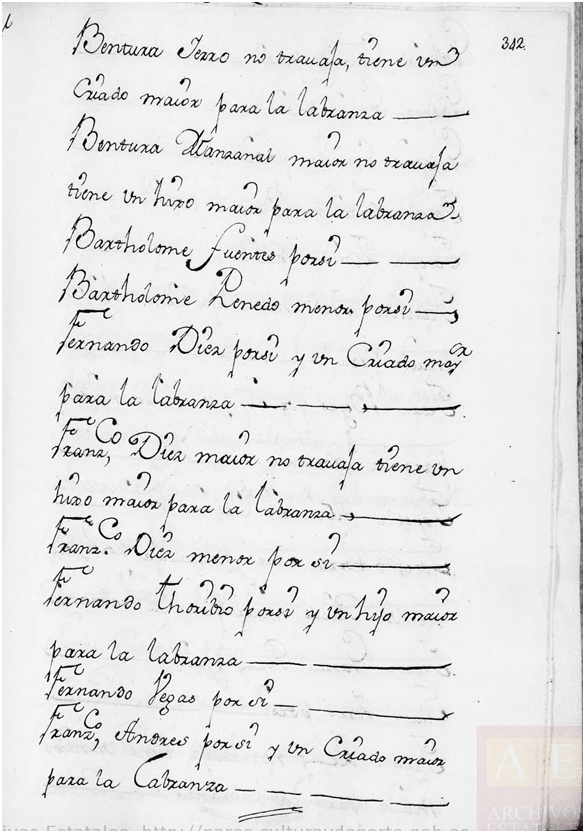 342.
Bentura Ferro no travaja, tiene un
Criado maior para la labranza
Bentura Manzanal maior no travaja
tiene un hixo maior para la labranza
Bartholome fuentes porsi
Bartholome Penedo menor porsi
Fernando Diez porsi y un Criado mayor
para la labranza
Franz,co Diez maior no travaja tiene un
hixo maior para la labranza
Franz.co Diez menor por si
Fernando thoribio porsi y un hijo maior
para la labranza
Fernando Vegas por si
Franz,co Andres por si y un Criado maior
para la Labranza
ARCHIVO